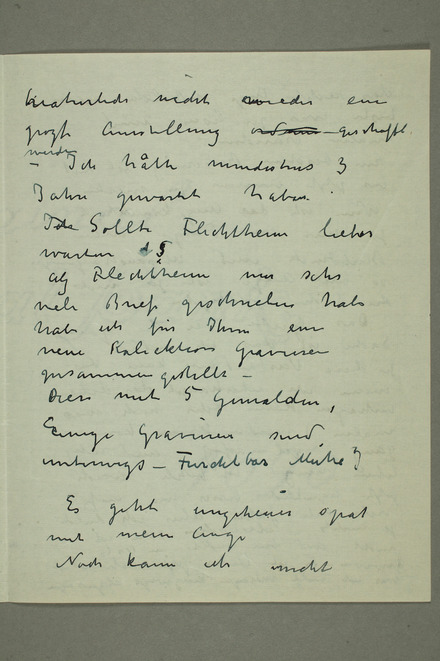 nicht wieder eine
große Ausstellung geschafft
werden
– Ich hätte mindestens 3
Jahre gewartet haben.
Sollte Flechtheim lieber
warten
als Flechtheim mir sehr
viele Briefe geschrieben hat
habe ich für Ihnen eine
neue Kollektion Gravuren
zusammengestellt –
Dies mit 5 Gemälden,
Einige Gravuren sind
unterwegs – Furchtbar Mühe
Es geht ungeheuer spät
mit mein Auge
Noch kann ich nicht